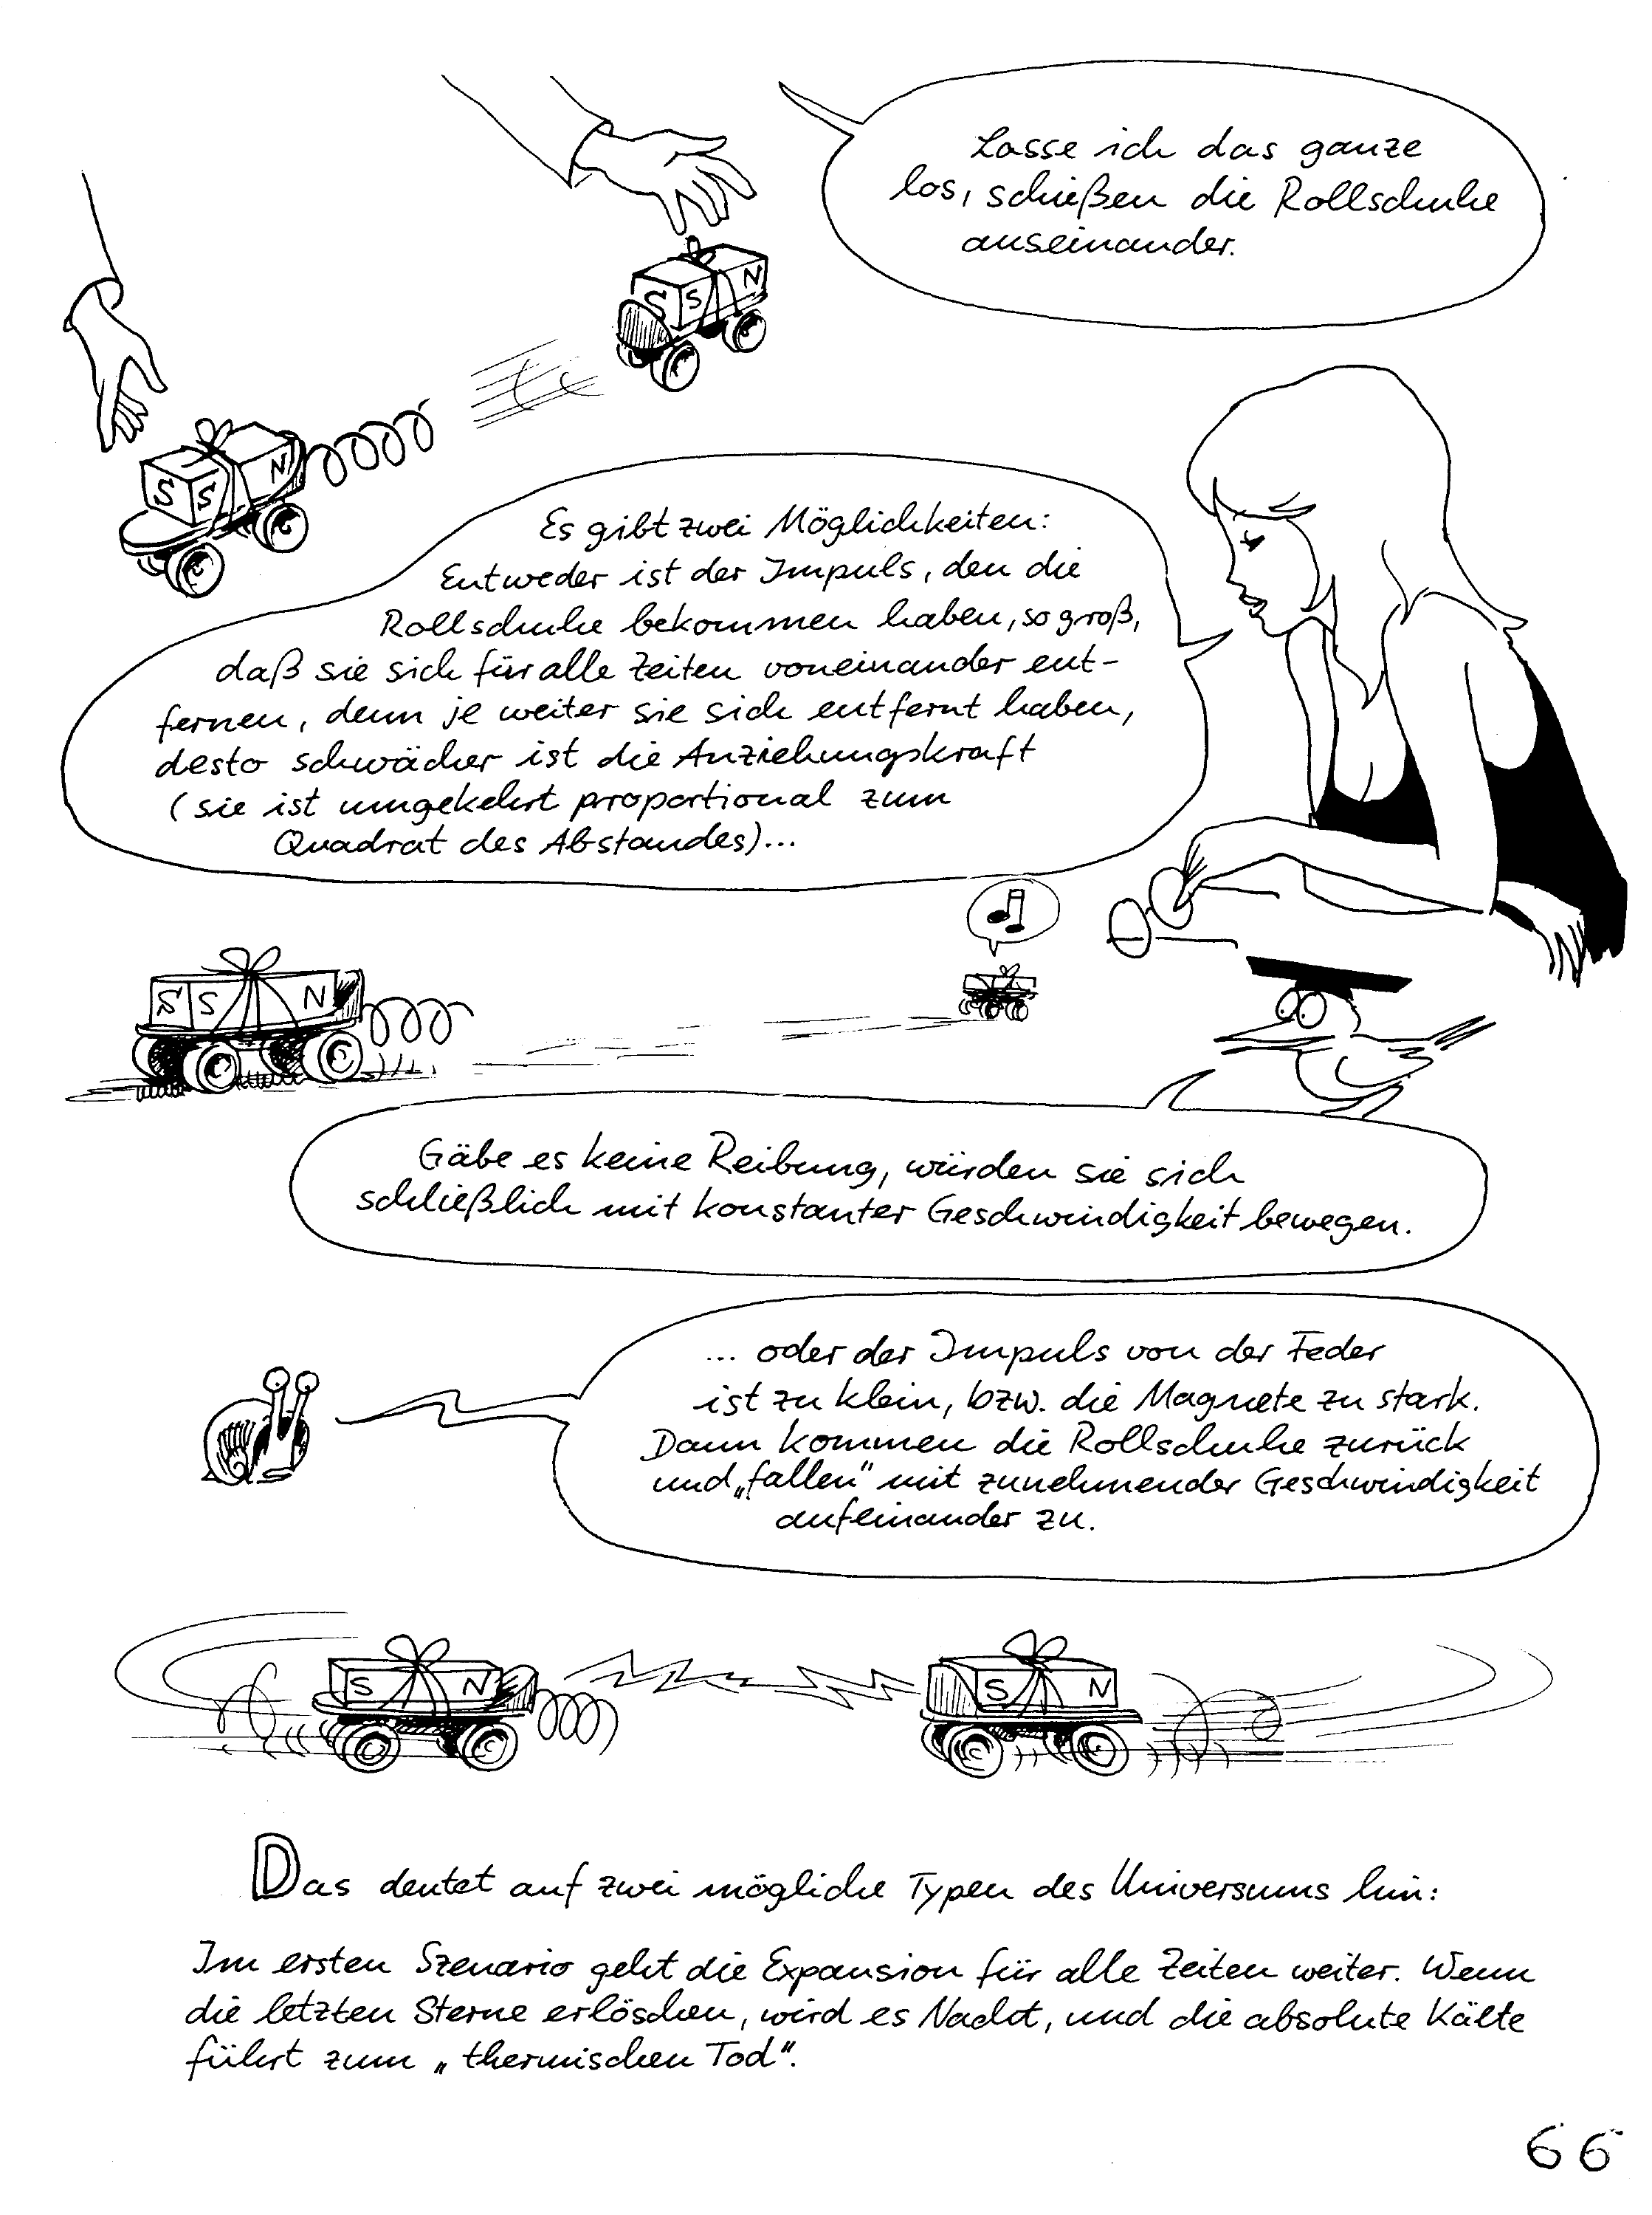 Lasse ich das ganze
los, schießen die Rollschuhe
auseinander.
S S N
S S N
Es gibt zwei Möglichkeiten:
Entweder ist der Impuls, den die
Rollschuhe bekommen haben, so groß,
daß sie sich für alle Zeiten voneinander ent-
fernen, denn je weiter sie sich entfernt haben,
desto schwächer ist die Anziehungskraft
(sie ist umgekehrt proportional zum
Quadrat des Abstandes)...
S S N
Gäbe es keine Reibung, würden sie sich
schließlich mit konstanter Geschwindigkeit bewegen.
... oder der Impuls von der Feder
ist zu klein, bzw. die Magnete zu stark.
Dann kommen die Rollschuhe zurück
und „fallen" mit zunehmender Geschwindigkeit
aufeinander zu.
S N
S N
Das deutet auf zwei mögliche Typen des Universums hin:
Im ersten Szenario geht die Expansion für alle Zeiten weiter. Wenn
die letzten Sterne erlöschen, wird es Nacht, und die absolute Kälte
führt zum „thermischen Tod".
66